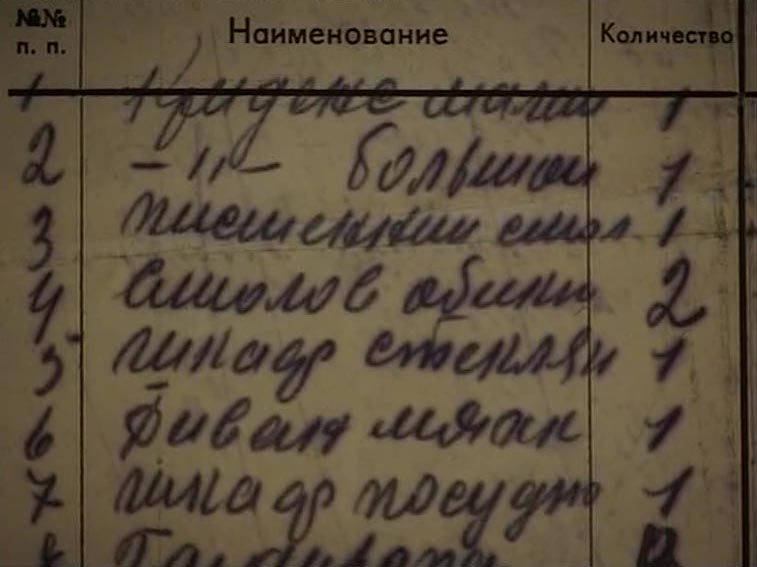 №№ п. п. Наименование Количество
1 Кридене мали 1
2 -"- большои 1
3 писменнии стол 1
4 Столов обикн 2
5 шкаф стеклян 1
6 Диван мягк 1
7 шкаф посудно 1
8